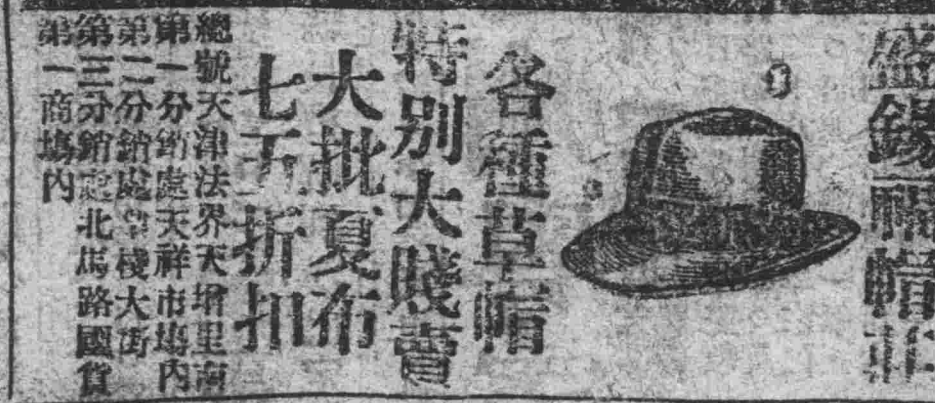 盛錫福帽莊
各種草帽
特別大賤賣
大批夏布
七五折扣
總號天津法界天增里南
第一分銷處天祥市塲內
第二分銷處估衣大街
第三分銷處北馬路國貨
第一商塲內